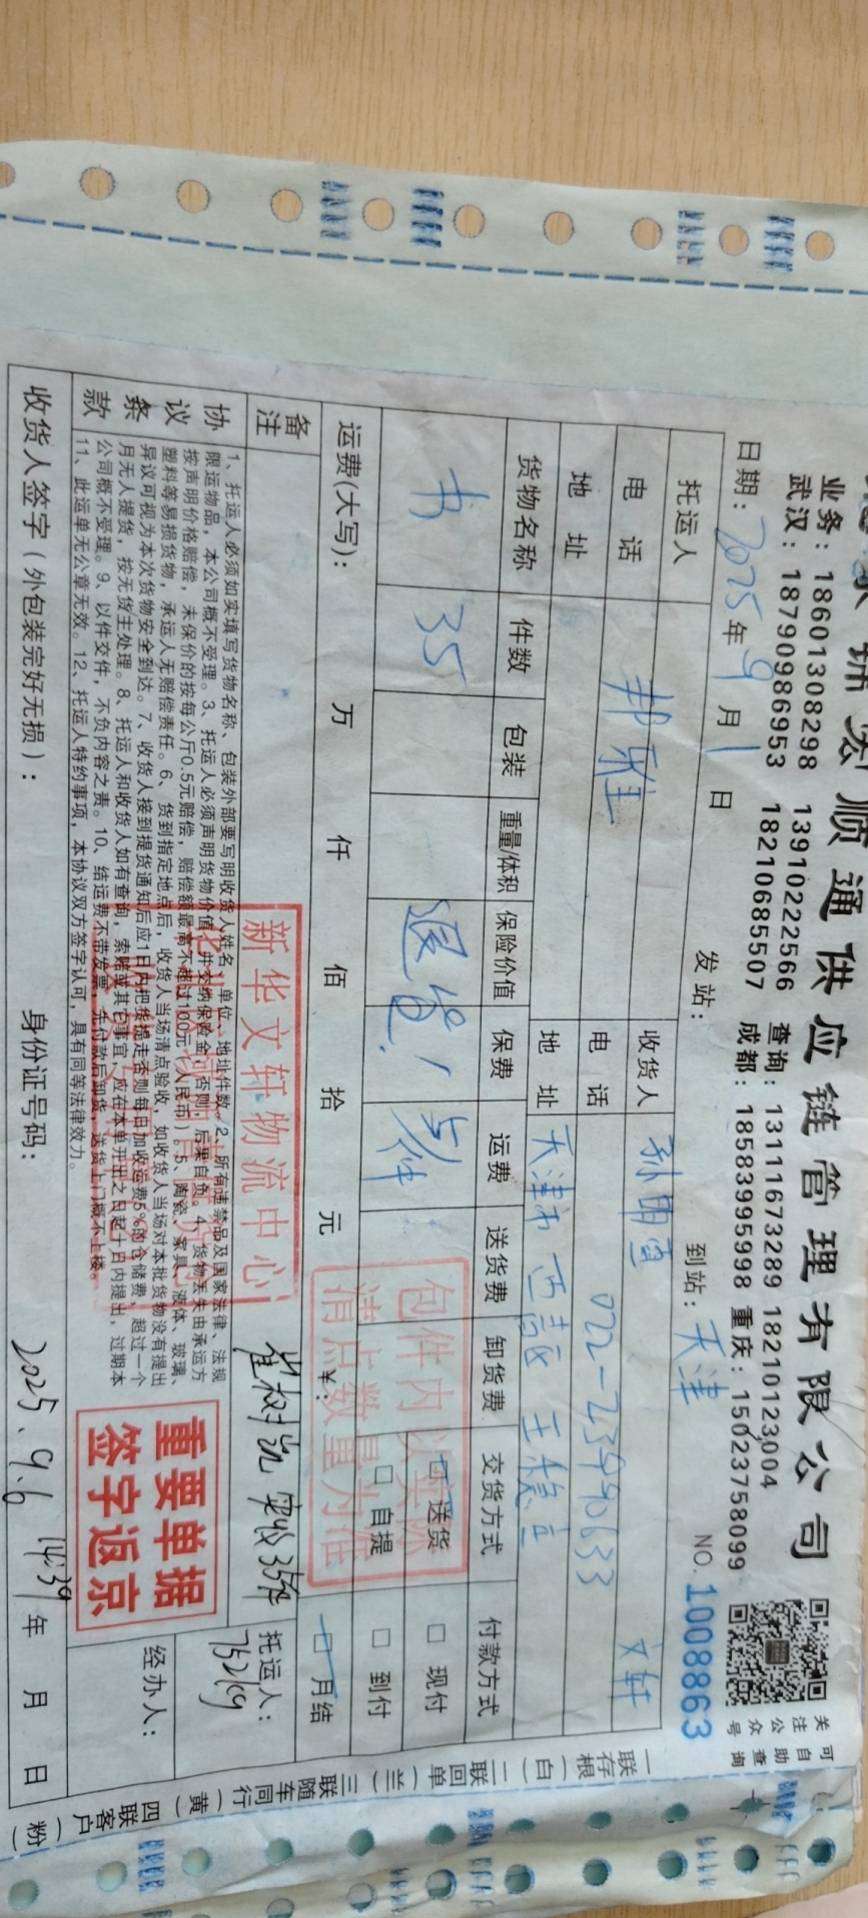 宏顺通供应链管理有限公司
业务：18601308298 13910222566 查询：13111673289 18210123004
武汉：18790986953 18210685507 成都：18583995998 重庆：15023758099
可自助查询
关注公众号
日期：2025年9月1日 发站： 到站：天津 NO.1008863
托运人 邦雅 收货人 孙明 文轩
电话 电话 022-23990633
地址 地址 天津市西青区王稳庄
货物名称 件数 包装 重量/体积 保险价值 保费 运费 送货费 卸货费 交货方式 付款方式
书 35 退货！ 件 □送货 □自提 □现付 □到付 □月结
运费(大写)： 万 仟 佰 拾 元 ¥：
包件内
清点数量为准
备注 新华文轩物流中心 崔树 实收35件
托运人：
752kg
协议条款
1、托运人必须如实填写货物名称、包装外部要写明收货人姓名，单位、地址件数。2、所有违禁品及国家法律、法规
限运物品，本公司概不受理。3、托运人必须声明货物价值，并交纳保险金，否则，后果自负。4、货物丢失由承运方
按声明价格赔偿，未保价的按每公斤0.5元赔偿，赔偿额最高不超过100元（人民币）。5、陶瓷、家具、液体、玻璃、
塑料等易损货物，承运人无赔偿责任。6、货到指定地点后，收货人当场清点验收，如收货人当场对本批货物没有提出
异议可视为本次货物安全到达。7、收货人接到提货通知后应1日内把货提走否则每日加收运费5%的仓储费，超过一个
月无人提货，按无货主处理。8、托运人和收货人如有查询，索赔或其它事宜，应在本单开出之日起十日内提出，过期本
公司概不受理。9、以件交件，不负内容之责。10、结运费不带发票，先付款后卸货，送货上门概不上楼。
11、此运单无公章无效。12、托运人特约事项，本协议双方签字认可，具有同等法律效力。
重要单据
签字返京
经办人：
收货人签字（外包装完好无损）： 身份证号码： 2025.9.6 14:39 年 月 日
一联存根（白） 二联回单（兰） 三联随车同行（黄） 四联客户（粉）